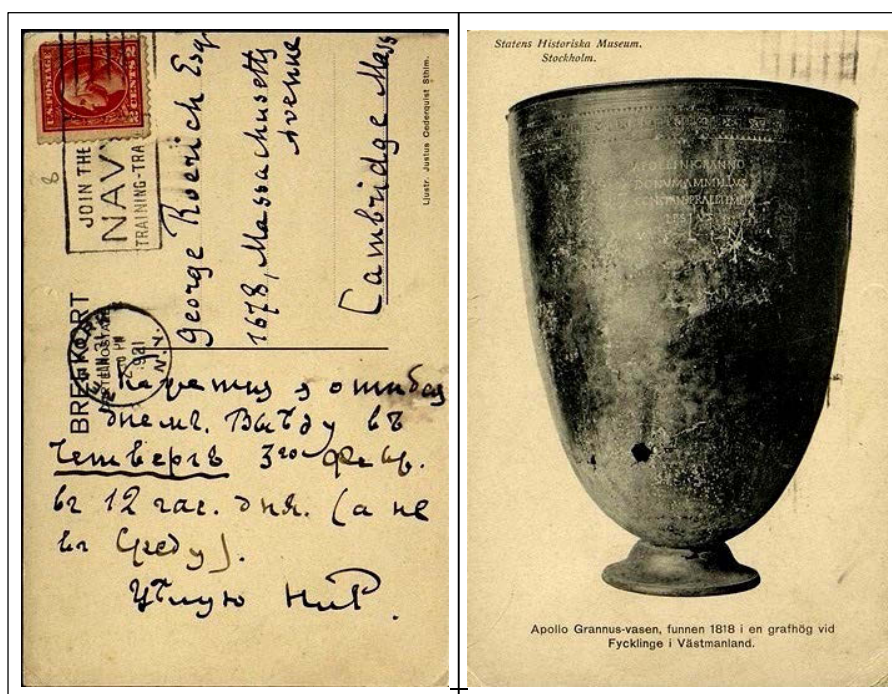 U.S. POSTAGE
2 CENTS 2
JOIN THE
NAVY
TRAINING-TRA
8
George Roerich Esq
1678, Massachusetts
Avenue
Cambridge Mass
Ljustr. Justus Cederquist Sthlm.
BREFKORT
1921
N.Y.
Кажется я ошибся
днемъ. Выѣду въ
Четвергъ 3го февр.
въ 12 час. дня. (а не
въ Среду).
Цѣлую
Statens Historiska Museum.
Stockholm.
APOLLINIGRANNO
DONVMAMMILLIVS
Apollo Grannus-vasen, funnen 1818 i en grafhög vid
Fycklinge i Västmanland.